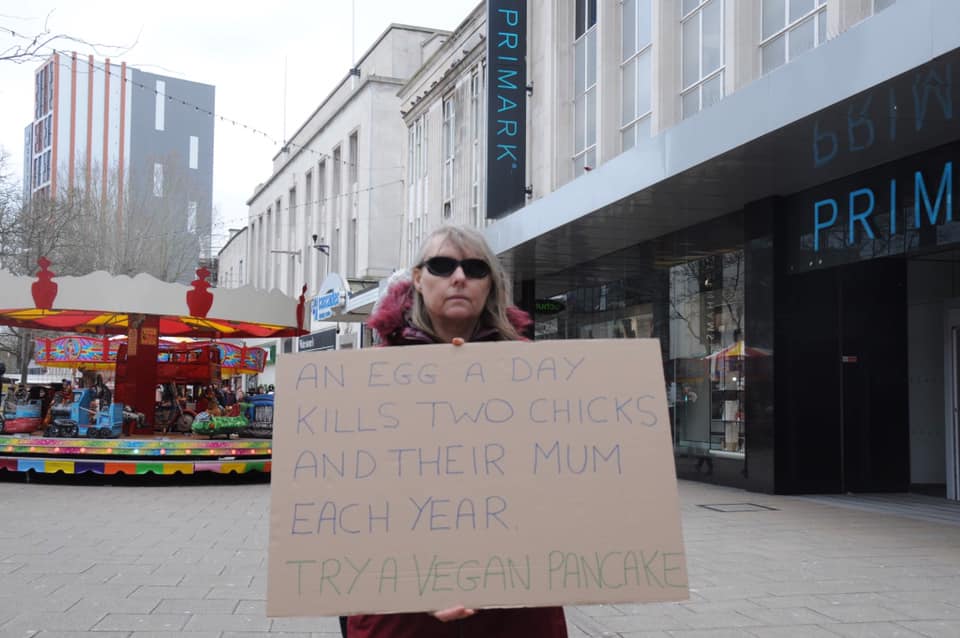 PRIMARK
PRIM
AN EGG A DAY
KILLS TWO CHICKS
AND THEIR MUM
EACH YEAR.
TRY A VEGAN PANCAKE